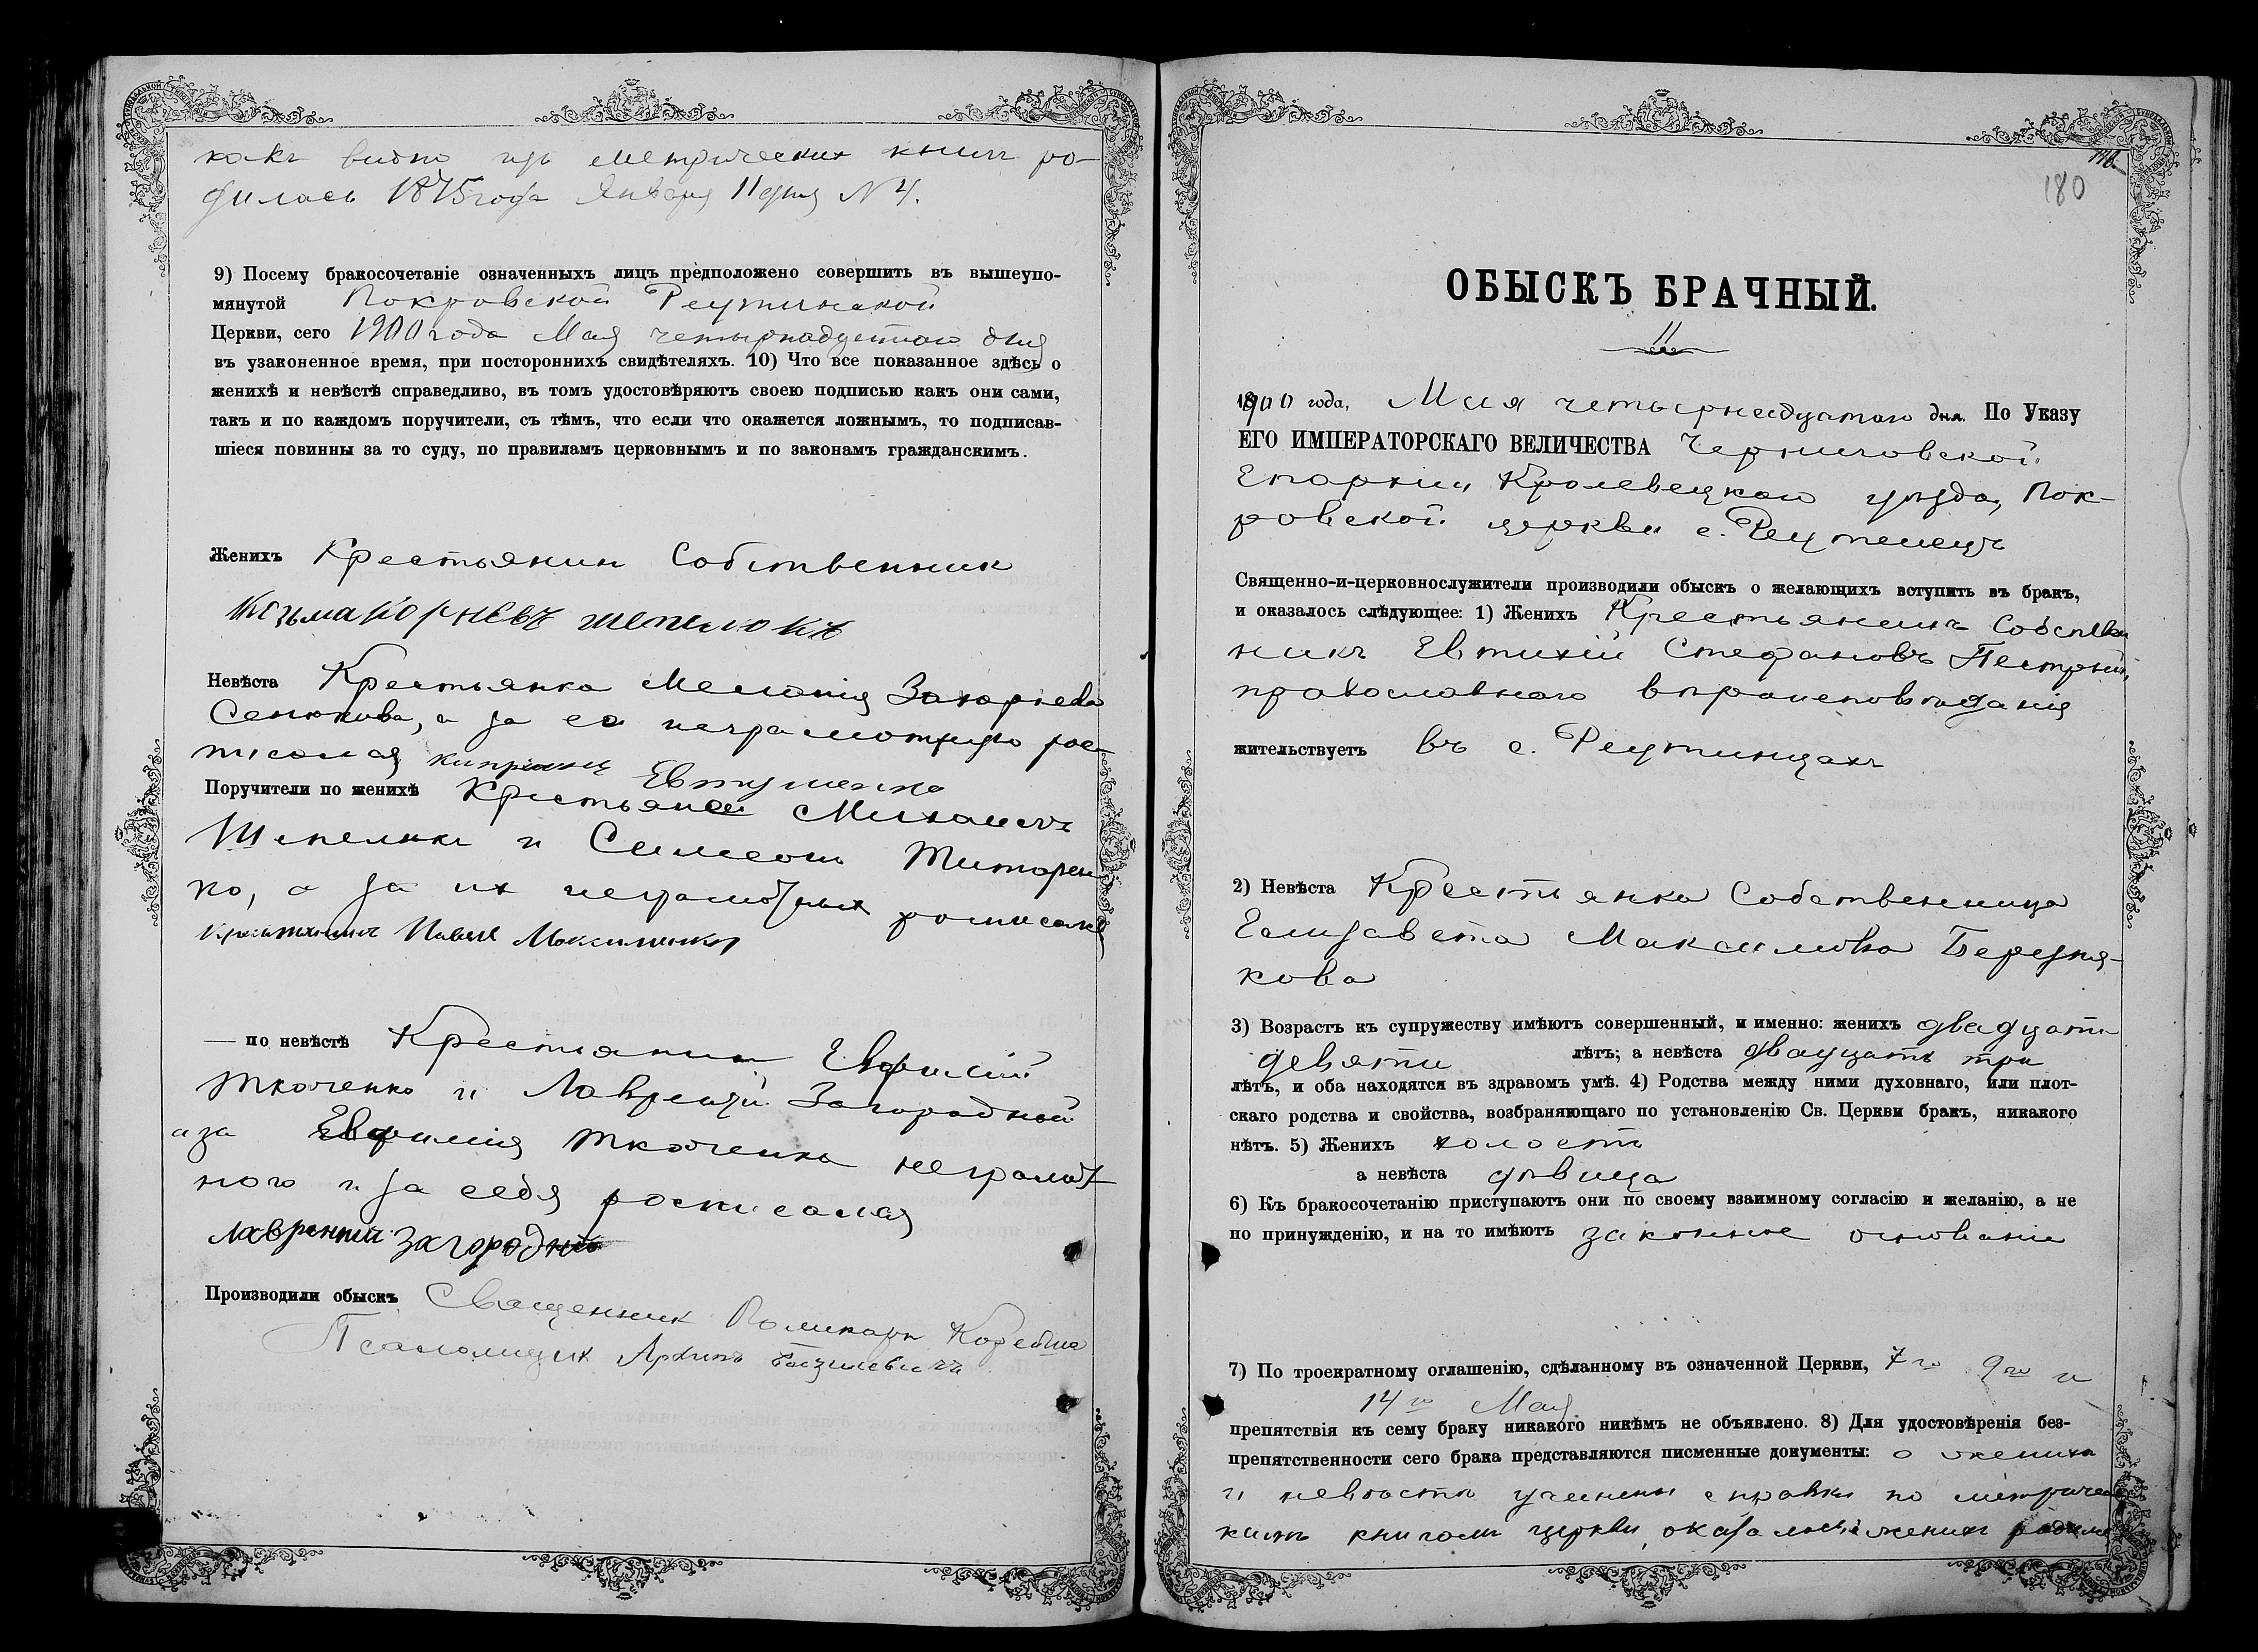 какъ видно изъ метрическихъ книгъ ро-
дилась 1875 года Января 11 дня № 4.
9) Посему бракосочетаніе означенныхъ лицъ предположено совершить въ вышеупо-
мянутой Покровской Реутинской
Церкви, сего 1900 года Мая четырнадцатого дня
въ узаконенное время, при постороннихъ свидѣтеляхъ. 10) Что все показанное здѣсь о
женихѣ и невѣстѣ справедливо, въ томъ удостовѣряютъ своею подписью какъ они сами,
такъ и по каждомъ поручители, съ тѣмъ, что если что окажется ложнымъ, то подписав-
шіеся повинны за то суду, по правиламъ церковнымъ и по законамъ гражданскимъ.
Женихъ Крестьянин Собственник
Козьма Корневъ шепелюкъ
Невѣста Крестьянка Меланія Захарнева
Сенюкова, а за ея неграмотную рос-
писался Евтушенко
Поручители по женихѣ Крестьяне Михаилъ
Шепелюк и Симеон Титарен
ко, а за их неграмотных росписался
крестьянинъ Павел Максименко
— по невѣстѣ Крестьянин Евфимій
Ткаченко и Лаврентій Загородной
а за Евфимія Ткаченка неграмот
ного и за себя росписался
Лаврентій Загородній
Производили обыскъ Священник Поликарп
Псаломщик Архипъ
180
ОБЫСКЪ БРАЧНЫЙ.
11
1900 года, Мая четырнадцатого дня. По Указу
ЕГО ИМПЕРАТОРСКАГО ВЕЛИЧЕСТВА Черниговской
Епархіи Кролевецкаго уѣзда, Пок-
ровской церкви с. Реутинецъ
Священно-и-церковнослужители производили обыскъ о желающихъ вступить въ бракъ,
и оказалось слѣдующее: 1) Женихъ Крестьянинъ Собствен
никъ Евтихій Стефановъ Пестрый,
православного вѣроисповѣданія
жительствуетъ въ с. Реутинцахъ
2) Невѣста Крестьянка Собственница
Елизавета Максимова Березня-
кова
3) Возрастъ къ супружеству имѣютъ совершенный, и именно: женихъ двадцати
девяти лѣтъ; а невѣста двадцать три
лѣтъ, и оба находятся въ здравомъ умѣ. 4) Родства между ними духовнаго, или плот-
скаго родства и свойства, возбраняющаго по установленію Св. Церкви бракъ, никакого
нѣтъ. 5) Женихъ холостъ
а невѣста дѣвица
6) Къ бракосочетанію приступаютъ они по своему взаимному согласію и желанію, а не
по принужденію, и на то имѣютъ законное основаніе
7) По троекратному оглашенію, сдѣланному въ означенной Церкви, 7го 9го и
14го Мая
препятствія къ сему браку никакого никѣмъ не объявлено. 8) Для удостовѣренія без-
препятственности сего брака представляются писменные документы: о женихѣ
и невѣстѣ учинены справки по метричес
кимъ книгамъ церкви, оказалось: женихъ родил